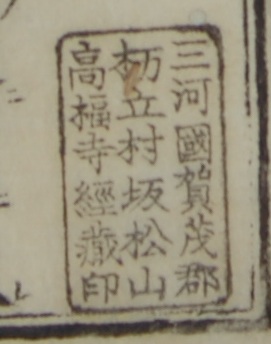 三河國賀茂郡
枥立村坂松山
高福寺經藏印